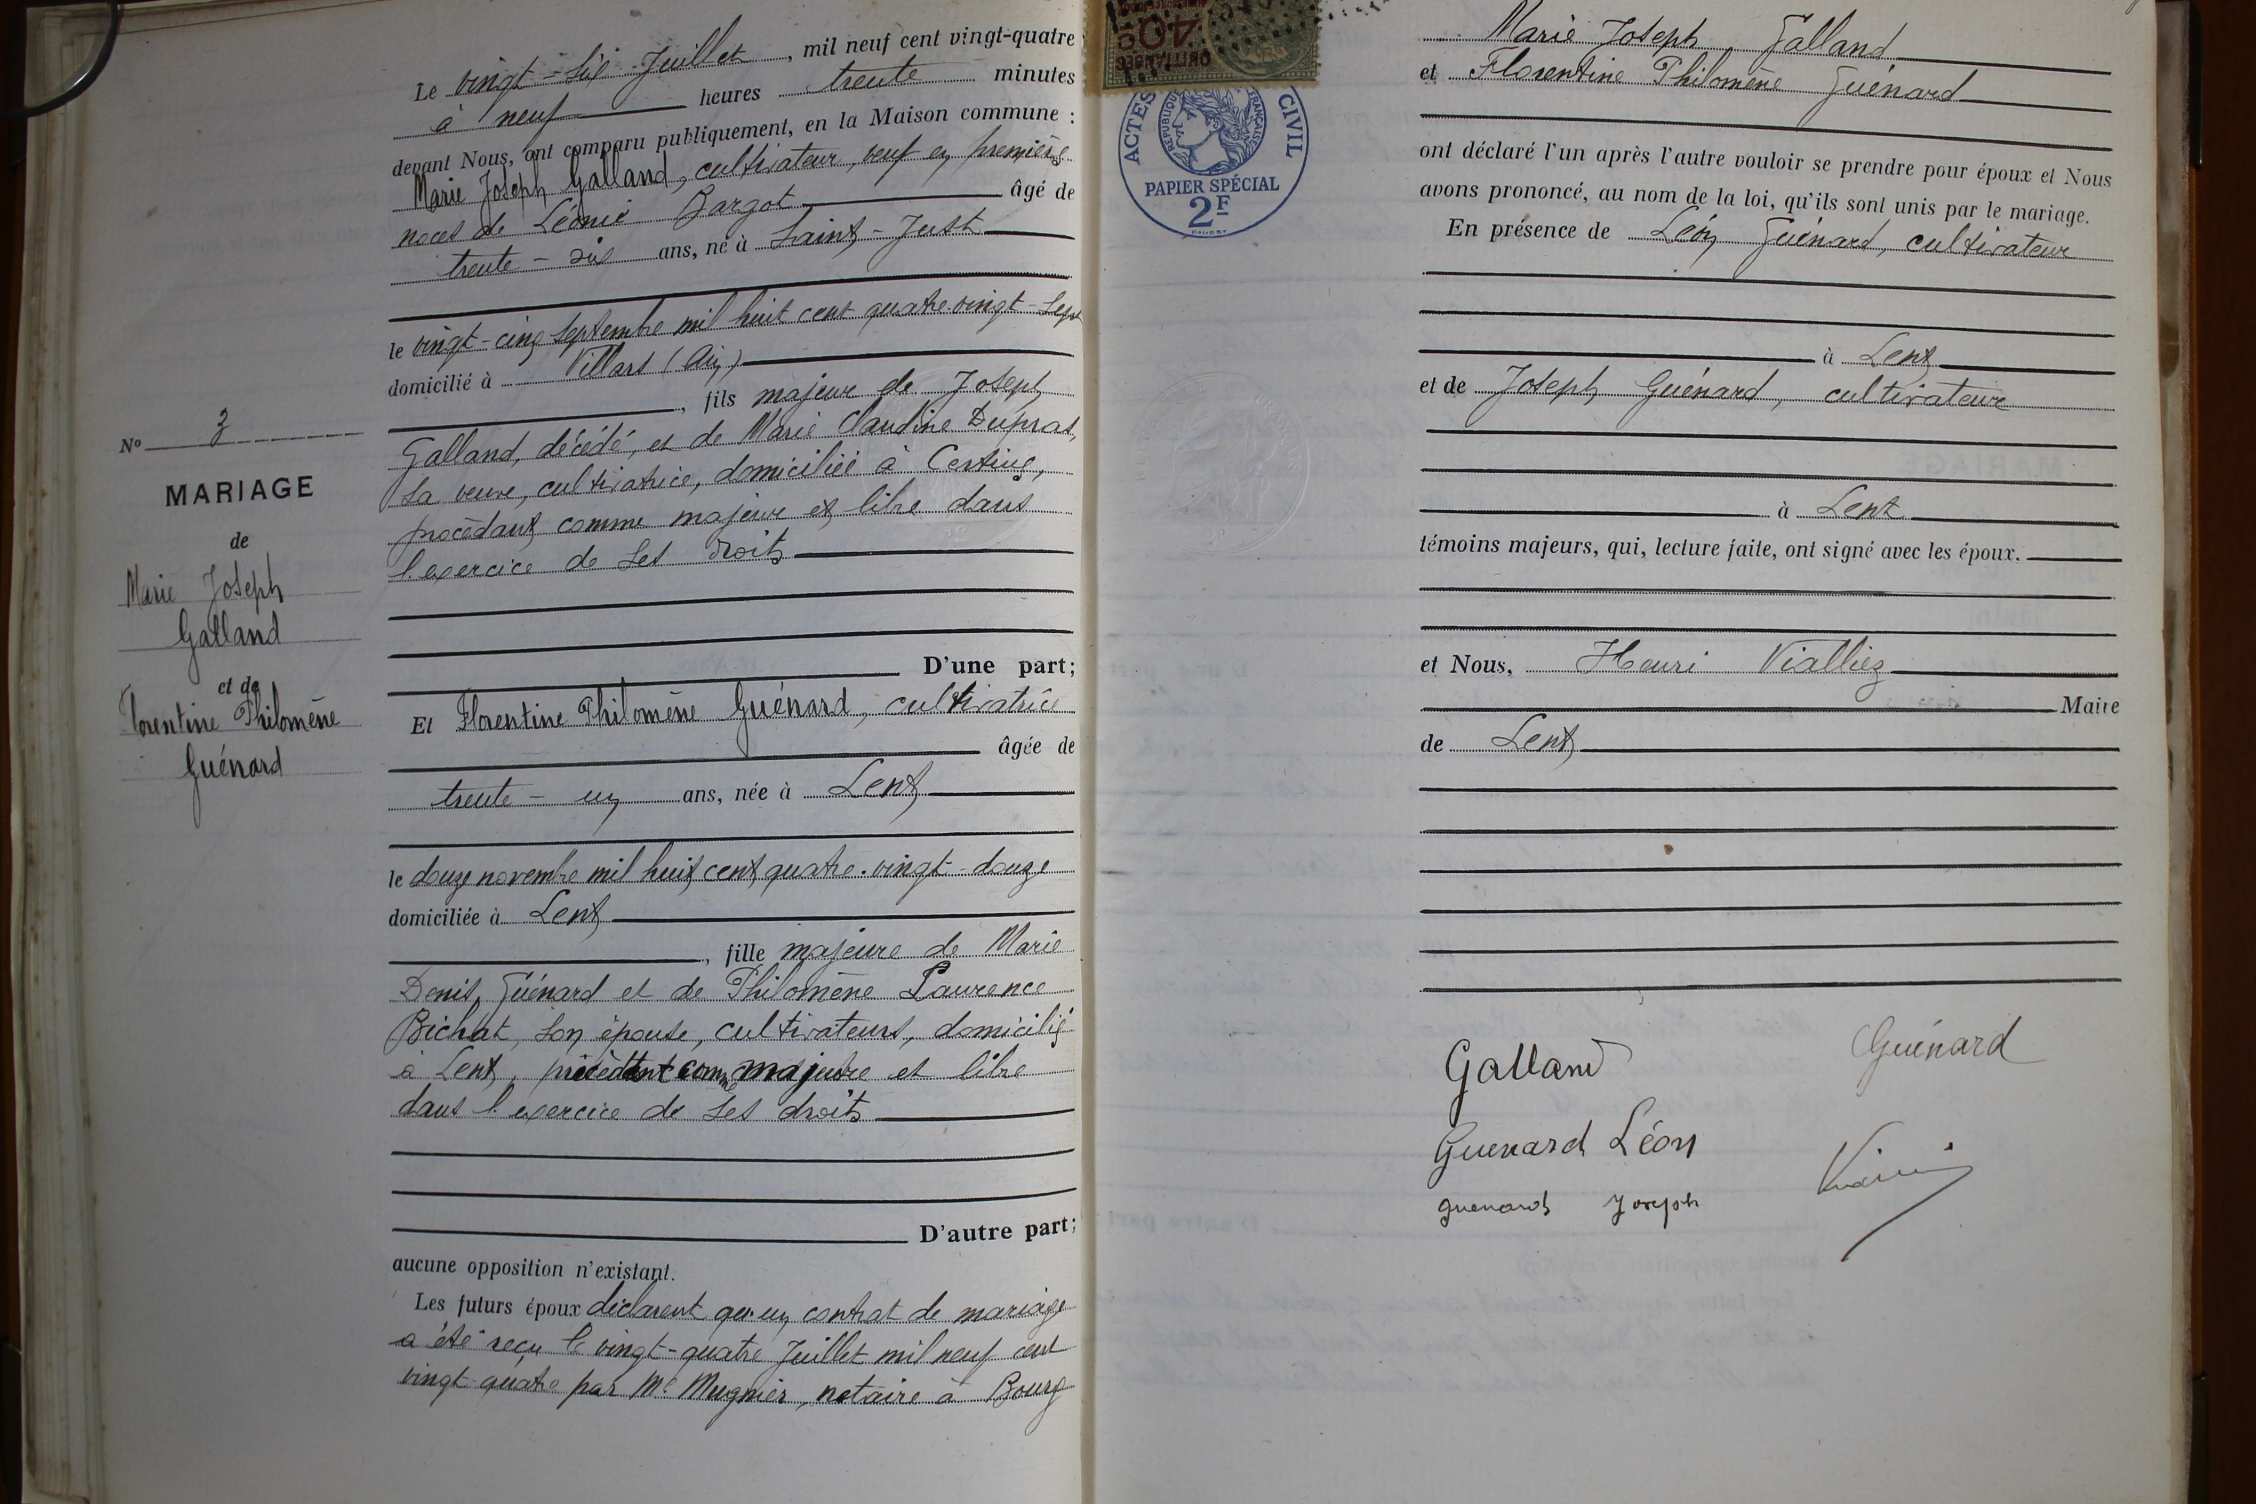 Le vingt-six Juillet, mil neuf cent vingt-quatre
à neuf heures trente minutes
devant Nous, ont comparu publiquement, en la Maison commune :
Marie Joseph Galland, cultivateur, veuf en premières
noces de Léonie Bargot âgé de
trente-six ans, né à Saint-Just
le vingt-cinq Septembre mil huit cent quatre-vingt-sept
domicilié à Villars (Ain)
, fils majeur de Joseph
Galland, décédé, et de Marie Claudine Dupras,
sa veuve, cultivatrice, domiciliée à Certines,
procédant comme majeur et libre dans
l'exercice de ses droits
D'une part;
Et Florentine Philomène Guénard, cultivatrice
âgée de
trente-un ans, née à Lent
le douze novembre mil huit cent quatre-vingt-douze
domiciliée à Lent
, fille majeure de Marie
Denis Guénard et de Philomène Laurence
Bichat, son épouse, cultivateurs, domiciliés
à Lent, procédant comme majeure et libre
dans l'exercice de ses droits
D'autre part;
aucune opposition n'existant.
Les futurs époux déclarent qu'un contrat de mariage
a été reçu le vingt-quatre Juillet mil neuf cent
vingt-quatre par Me Mugnier, notaire à Bourg
No 3
MARIAGE
de
Marie Joseph
Galland
et de
Florentine Philomène
Guénard
ACTES CIVIL
REPUBLIQUE FRANÇAISE
PAPIER SPÉCIAL
2F
Marie Joseph Galland
et Florentine Philomène Guénard
ont déclaré l'un après l'autre vouloir se prendre pour époux et Nous
avons prononcé, au nom de la loi, qu'ils sont unis par le mariage.
En présence de Léon Guénard, cultivateur
à Lent
et de Joseph Guénard, cultivateur
à Lent
témoins majeurs, qui, lecture faite, ont signé avec les époux.
et Nous, Henri Vialliez
Maire
de Lent
Galland Guénard
Guenard Léon
guenard Joseph